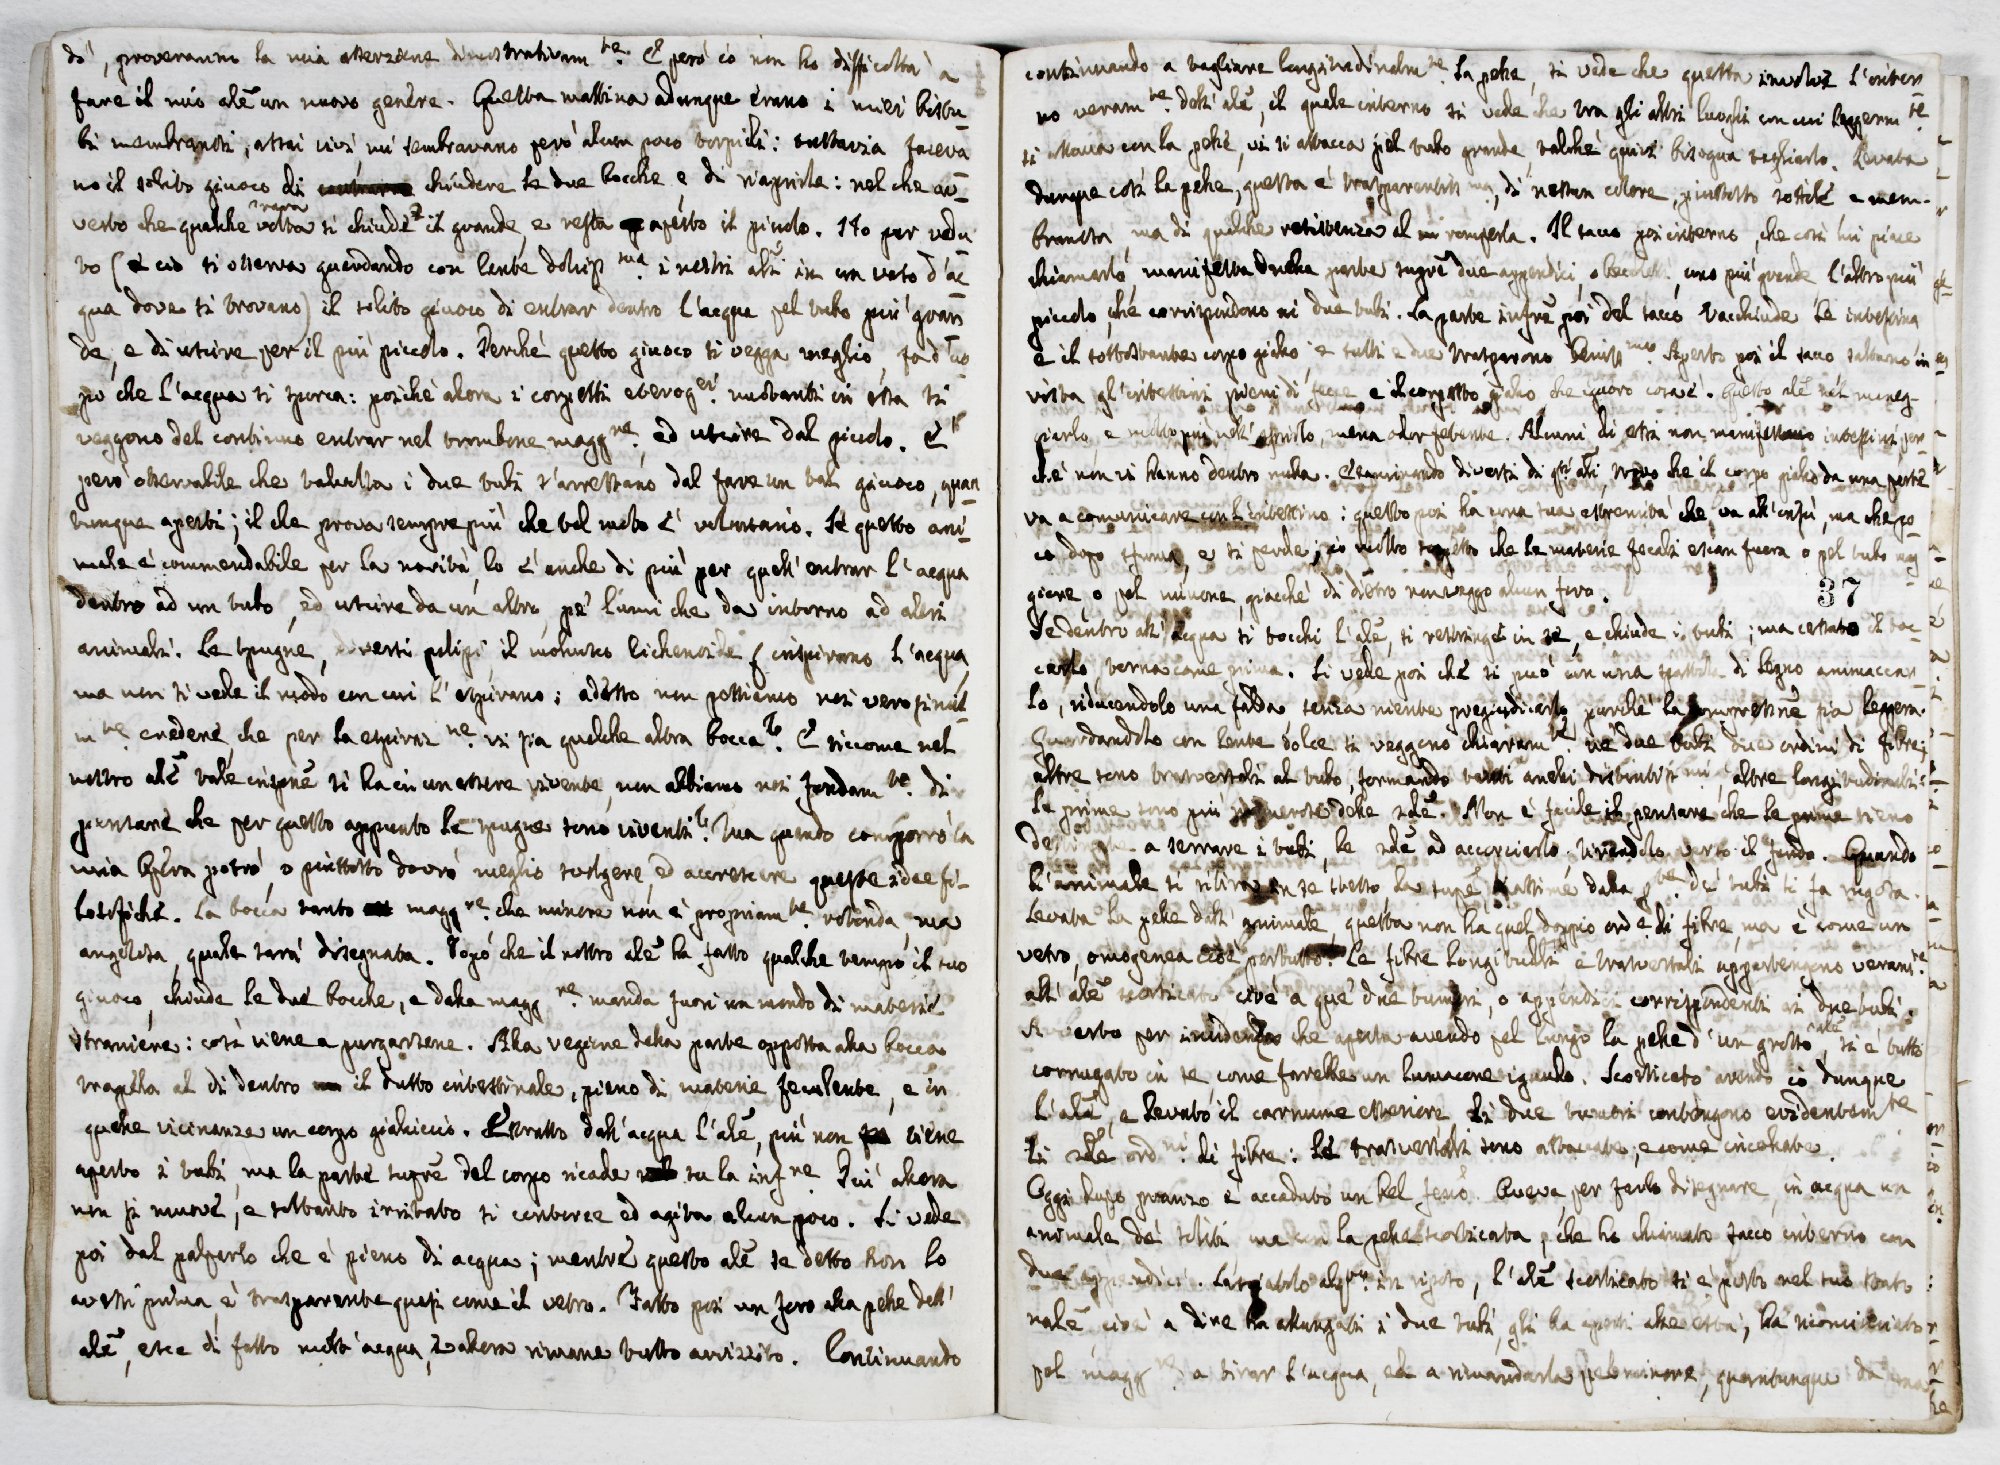 dò, proveranno la mia asserzione dimostrativam.te E però io non ho difficoltà a
fare il mio ale un nuovo genere. Questa mattina adunque erano i miei bistu-
bi membranosi, assai vivi, mi sembravano però alcun poco torpidi: tuttavia faceva
no il solito giuoco di chiudere le due bocche e di riaprirle: nel che av-
verto che qualche rara volta si chiude il grande, e resta aperto il picolo. Ho pur vedu
to (e ciò si osserva guardando con lente dolciss.ma i nostri ali in un vaso d'ac
qua dove si trovano) il solito giuoco di entrar dentro l'acqua pel tubo più gran
de, e di uscire per il più piccolo. Perchè questo giuoco si vegga meglio, fa d'uo
po che l'acqua si sporca: poichè alora i corpetti eterog.ei nuotanti in essa si
veggono del continuo entrar nel trombone magg.re, ed uscire dal picolo. È
però osservabile che talvolta i due tubi s'arrestano dal fare un tal giuoco, quan
tunque aperti; il che prova sempre più che tal moto è volontario. Se questo ani-
male è commendabile per la novità, lo è anche di più per quell'entrar l'acqua
dentro ad un tubo, ed uscire da un altro, pe' lumi che da intorno ad altri
animali. Le spugne, diversi polipi, il molusco lichenoide inspirano l'acqua,
ma non si vede il modo con cui l'espirano: adesso non possiamo noi verosimil-
m.te credere, che per la espiraz.ne vi sia qualche altra bocca? E siccome nel
nostro ale tale inspne si ha in un essere vivente, non abbiamo noi fondam.te di
pensare che per questo appunto le spugne sono viventi? Ma quando comporrò la
mia Opera potrò, o piuttosto dovrò meglio svolgere, ed accrescere queste idee fi-
losofiche. La bocca tanto magg.re che minore non è propriam.te rotonda, ma
angolosa, quale sarà disegnata. Dopo che il nostro ale ha fatto qualche tempo il suo
giuoco, chiude le due bocche, e dalla magg.re manda fuori un mondo di materie
straniere: così viene a purgarsene. Alla regione della parte opposta alla bocca
traspella al di dentro il dutto intestinale, pieno di materie feculente, e in
quelle vicinanze un corpo gialiccio. Estratto dall'acqua l'ale, più non tiene
aperto i tubi, ma la parte supre del corpo ricade su la inf.re Più alora
non si muove, e soltanto irritato si contorce ed agita alcun poco. Si vede
poi dal palparlo che è pieno di acqua; mentre questo ale se detto non lo
avessi prima è trasparente quasi come il vetro. Fatto poi un foro alla pelle dell'
ale, esce di fatto molta acqua, e alora rimane tutto avvizzito. Continuando
continuando a tagliare longitudinalm.te la pelle, si vede che questa involve l'inter
no veram.te dell'ale, il quale interno si vede che tra gli altri luoghi con cui leggerm.te
si attacca con la pelle, vi si attacca pel tubo grande, talchè quivi bisogna tagliarlo. Levata
dunque così la pelle, questa è trasparentiss.ma, di nessun colore, piuttosto sottile e mem-
branosa, ma di qualche resistenza al romperla. Il sacco poi interno, che così lui piace
chiamarlo, manifesta nella parte supre due appendici, uno più grande l'altro più
piccolo, che corrispondono ai due tubi. La parte infre poi del sacco racchiude le intestina
e il sottostante corpo giallo e tutti e due trasparono beniss.mo Aperto poi il sacco saltano in
vista gl'intestini pieni di fecce e il corpetto giallo che ignoro cosa è. Questo ale nel maneg-
giarlo, e molto più nell'aprirlo, mena odor fetente. Alcuni di essi non manifestano intestini, per
chè non vi hanno dentro nulla. Esaminando diversi di q.ti ali, trovo che il corpo giallo da una parte
va a comunicare con l'intestino: questo poi ha una sua estremità che va all'insù, ma che po
co dopo sfuma, e si perde; io molto sospetto che le materie fecali escan fuora o pel tubo mag
giore, o pel minore, giacchè di dietro non veggo alcun foro.
37
Se dentro all'acqua si tocchi l'ale, si restringe in se, e chiude i tubi; ma cessato il toc-
carlo, torna come prima. Si vede poi che si può con una spattola di legno ammaccar-
lo, riducendolo una falda, senza niente pregiudicarlo, purchè la compressine sia leggera.
Guardandolo con lente dolce si veggono chiaram.te ne due tubi due ordini di fibre;
altre sono trasversali al tubo, formando tanti anelli distintiss.mi, altre longitudinali:
le prime sono più numerose delle 2de. Non è facile il pensare che le prime sieno
destinate a serrare i tubi, le 2de ad accorciarlo, tirandolo verso il fondo. Quando
l'animale si ritira in se stesso la supre massime dalla p.te de' tubi si fa rugosa.
Levata la pelle dall'animale, questa non ha quel doppio orde di fibre, ma è come un
vetro, omogenea cioè pertutto. Le fibre longitudli e trasversali appartengono veram.te
all'ale scorticato cioè a que' due tumori, o appendici corrispondenti ai due tubi.
Avverto per incidenza che aperta avendo pel lungo la pelle d'un grosso ale, si è tutto
corrugato in se come farebbe un lumacone ignudo. Scorticato avendo io dunque
l'ale, e levato il carnume esteriore li due tumori contengono evidentem.te
li 2de ord.ni di fibre: le trasversali sono attaccate, e come incollate.
Oggi dopo pranzo è accaduto un bel feno. Aveva, per farlo disegnare, in acqua un
animale dei soliti ma con la pelle scorticata, che ho chiamato sacco interno con
due appendici. Lasciatolo alq.to in riposo, l'ale scorticato si è posto nel suo stato
nale, cioè a dire ha allungati i due tubi, gli ha aperti alle estrà, ha ricominciato
pel magg.re a tirar l'acqua, ed a rimandarla pel minore, quantunque da una